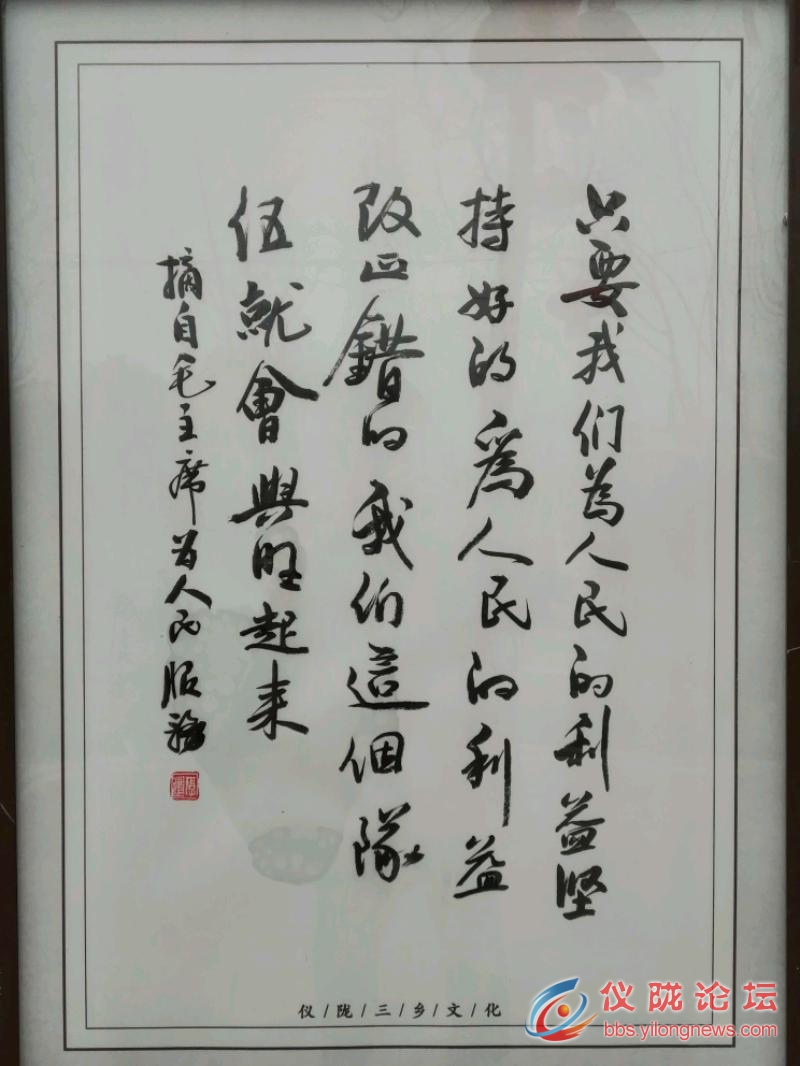 只要我们為人民的利益坚
持好的為人民的利益
改正錯的我们這個隊
伍就會興旺起来
摘自毛主席为人民服務
仪/陇/三/乡/文/化
仪陇论坛
bbs.yilongnews.com